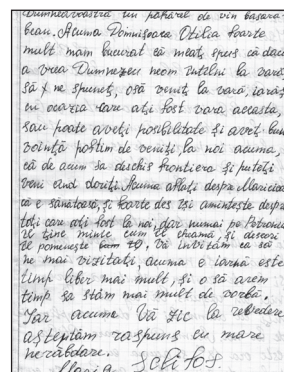 Dumneavoastră un păhărel de vin basara-
bean. Acuma Domnișoare Otilia foarte
mult mam bucurat că meați spus că dacă
a vrea Dumnezeu neom întîlni la vară,
să ne spuneț, osă veniț la vară, iarăș
cu ocazia care ați fost vara aceasta,
sau poate aveți posibilitate și aveț bun
voință poftim de veniți la noi acuma,
că de acum sa deschis frontiera și puteți
veni cînd doriți. Acuma aflați despre Maricica
că e sănătoasă, și foarte des își amintește despre
toți care ați fost la noi, dar numai pe Petronia
îl ține minte cum îl cheamă, și deseori
îl pomenește. Vă invităm ca să
ne mai vizitați, acuma e iarnă este
timp liber mai mult, și o să avem
timp sa stăm mai mult de vorbă.
Iar acuma Vă zic la revedere
așteptăm răspuns cu mare
nerăbdare.
Maria Schifos.